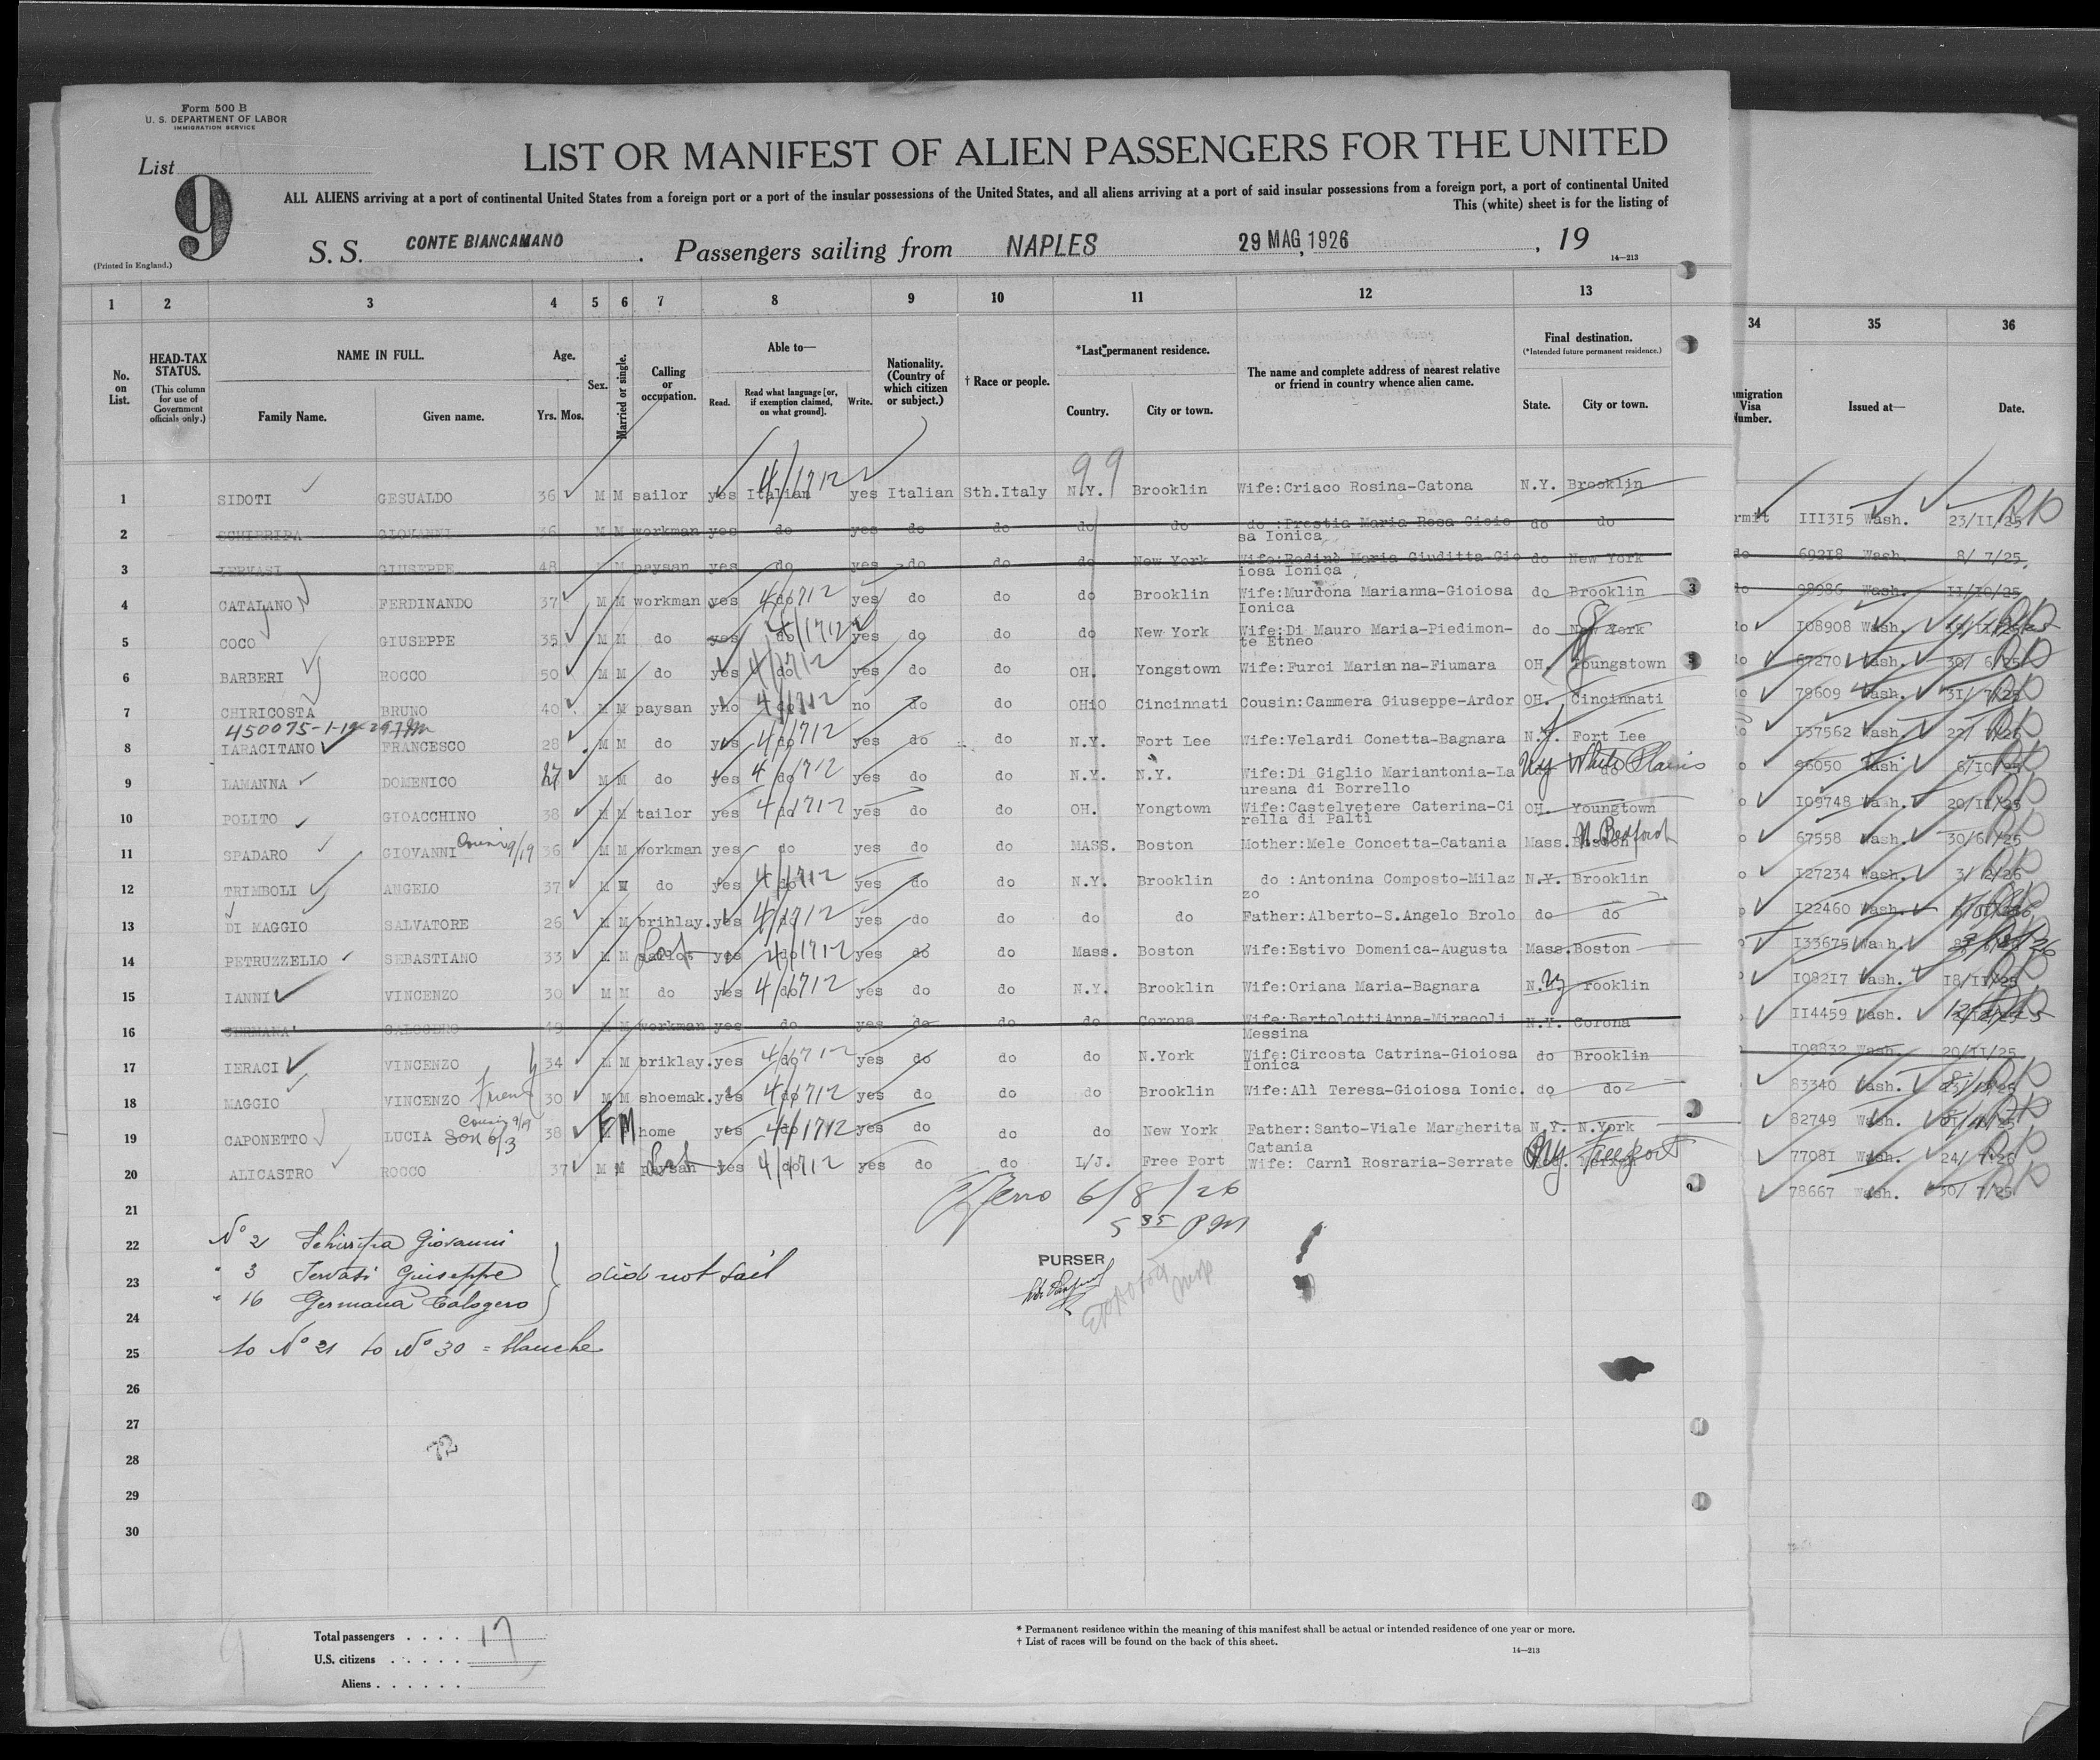 Form 500 B
U. S. DEPARTMENT OF LABOR
IMMIGRATION SERVICE
List
9
(Printed in England.)
LIST OR MANIFEST OF ALIEN PASSENGERS FOR THE UNITED
ALL ALIENS arriving at a port of continental United States from a foreign port or a port of the insular possessions of the United States, and all aliens arriving at a port of said insular possessions from a foreign port, a port of continental United
This (white) sheet is for the listing of
S. S. CONTE BIANCAMANO . Passengers sailing from NAPLES 29 MAG 1926 , 19
14—213
1 2 3 4 5 6 7 8 9 10 11 12 13 34 35 36
No. on List.
HEAD-TAX STATUS.
(This column for use of Government officials only.)
NAME IN FULL.
Family Name. Given name.
Age.
Yrs. Mos.
Sex.
Married or single.
Calling or occupation.
Able to—
Read. Read what language [or, if exemption claimed, on what ground]. Write.
Nationality. (Country of which citizen or subject.)
† Race or people.
*Last permanent residence.
Country. City or town.
The name and complete address of nearest relative or friend in country whence alien came.
Final destination.
(*Intended future permanent residence.)
State. City or town.
Visa Issued at— Date.
1 SIDOTI GESUALDO 36 M M sailor yes Italian 4/1712 yes Italian Sth.Italy N.Y. 99 Brooklin Wife:Criaco Rosina-Catona N.Y. Brooklin III3I5 Wash. 23/II/25
2 SCHIRRIPA GIOVANNI 36 M M workman yes do yes do do do do do :Prestia Maria Rosa Gioio do do 692I8 Wash. 8/ 7/25
sa Ionica
3 IERVASI GIUSEPPE 48 M paysan yes do yes do do do New York Wife:Rodinò Maria Giuditta-Gio do New York 98986 Wash. II/IO/25
iosa Ionica
4 CATALANO FERDINANDO 37 M M workman yes do 4/1712 yes do do do Brooklin Wife:Murdona Marianna-Gioiosa do Brooklin IO8908 Wash.
Ionica
5 COCO GIUSEPPE 35 M M do yes do 4/1712 yes do do do New York Wife:Di Mauro Maria-Piedimon- do New York 67270 Wash. 30/ 6/25
te Etneo
6 BARBERI ROCCO 50 M M do yes do 4/1712 yes do do OH. Yongstown Wife:Furci Marianna-Fiumara OH. Youngstown 78609 Wash. 31/ 7/25
7 CHIRICOSTA BRUNO 40 M M paysan no do 4/1712 no do do OHiO Cincinnati Cousin:Cammera Giuseppe-Ardor OH. Cincinnati I37562 Wash.
8 IARACITANO FRANCESCO 28 M M do yes do 4/1712 yes do do N.Y. Fort Lee Wife:Velardi Conetta-Bagnara N.J. Fort Lee 96050 Wash. 6/IO/25
9 LAMANNA DOMENICO 27 M M do yes do 4/1712 yes do do N.Y. N.Y. Wife:Di Giglio Mariantonia-La Ny White Plains IO9748 Wash. 20/II/25
ureana di Borrello
10 POLITO GIOACCHINO 38 M M tailor yes do 4/1712 yes do do OH. Yongtown Wife:Castelvetere Caterina-Ci OH. Youngtown 67558 Wash. 30/6/25
rella di Palti
11 SPADARO GIOVANNI Cousin 9/19 36 M M workman yes do yes do do MASS. Boston Mother:Mele Concetta-Catania Mass. Boston N. Bedford I27234 Wash. 3/ 2/26
12 TRIMBOLI ANGELO 37 M M do yes do 4/1712 yes do do N.Y. Brooklin do :Antonina Composto-Milaz N.Y. Brooklin I22460 Wash.
zo
13 DI MAGGIO SALVATORE 26 M M brihlay. yes do 4/1712 yes do do do do Father:Alberto-S.Angelo Brolo do do I33675 Wash.
14 PETRUZZELLO SEBASTIANO 33 M M yes do 4/1712 yes do do Mass. Boston Wife:Estivo Domenica-Augusta Mass. Boston IO82I7 Wash. I8/II/25
15 IANNI VINCENZO 30 M M do yes do 4/1712 yes do do N.Y. Brooklin Wife:Oriana Maria-Bagnara N.Y. rooklin II4459 Wash.
16 GERMANA' CALOGERO 49 M M workman yes do yes do do do Corona Wife:BertolottiAnna-Miracoli N.Y. Corona IO9832 Wash. 20/II/25
Messina
17 IERACI VINCENZO 34 M M briklay. yes do 4/1712 yes do do do N.York Wife:Circosta Catrina-Gioiosa do Brooklin 83340 Wash.
Ionica
18 MAGGIO VINCENZO Friend 30 M M shoemak. yes do 4/1712 yes do do do Brooklin Wife:Alì Teresa-Gioiosa Ionic. do do 82749 Wash.
19 CAPONETTO LUCIA Cousin 9/19 38 F M home yes do 4/1712 yes do do do New York Father:Santo-Viale Margherita N.Y. N.York 7708I Wash.
Catania
20 ALICASTRO ROCCO 37 M M paysan yes do 4/1712 yes do do L/J. Free Port Wife: Carnì Rosraria-Serrate Ny Freeport 78667 Wash. 30/ 7/25
21
22
23
24
25
26
27
28
29
30
6/8/26
5 35 PM
PURSER
No 2 Schirripa Giovanni
" 3 Jervasi Giuseppe
" 16 Germanà Calogero
did not sail
to No 21 to No 30 = blanche
72
Total passengers . . . . 17
U.S. citizens . . . . .
Aliens . . . . . .
* Permanent residence within the meaning of this manifest shall be actual or intended residence of one year or more.
† List of races will be found on the back of this sheet.
14—213